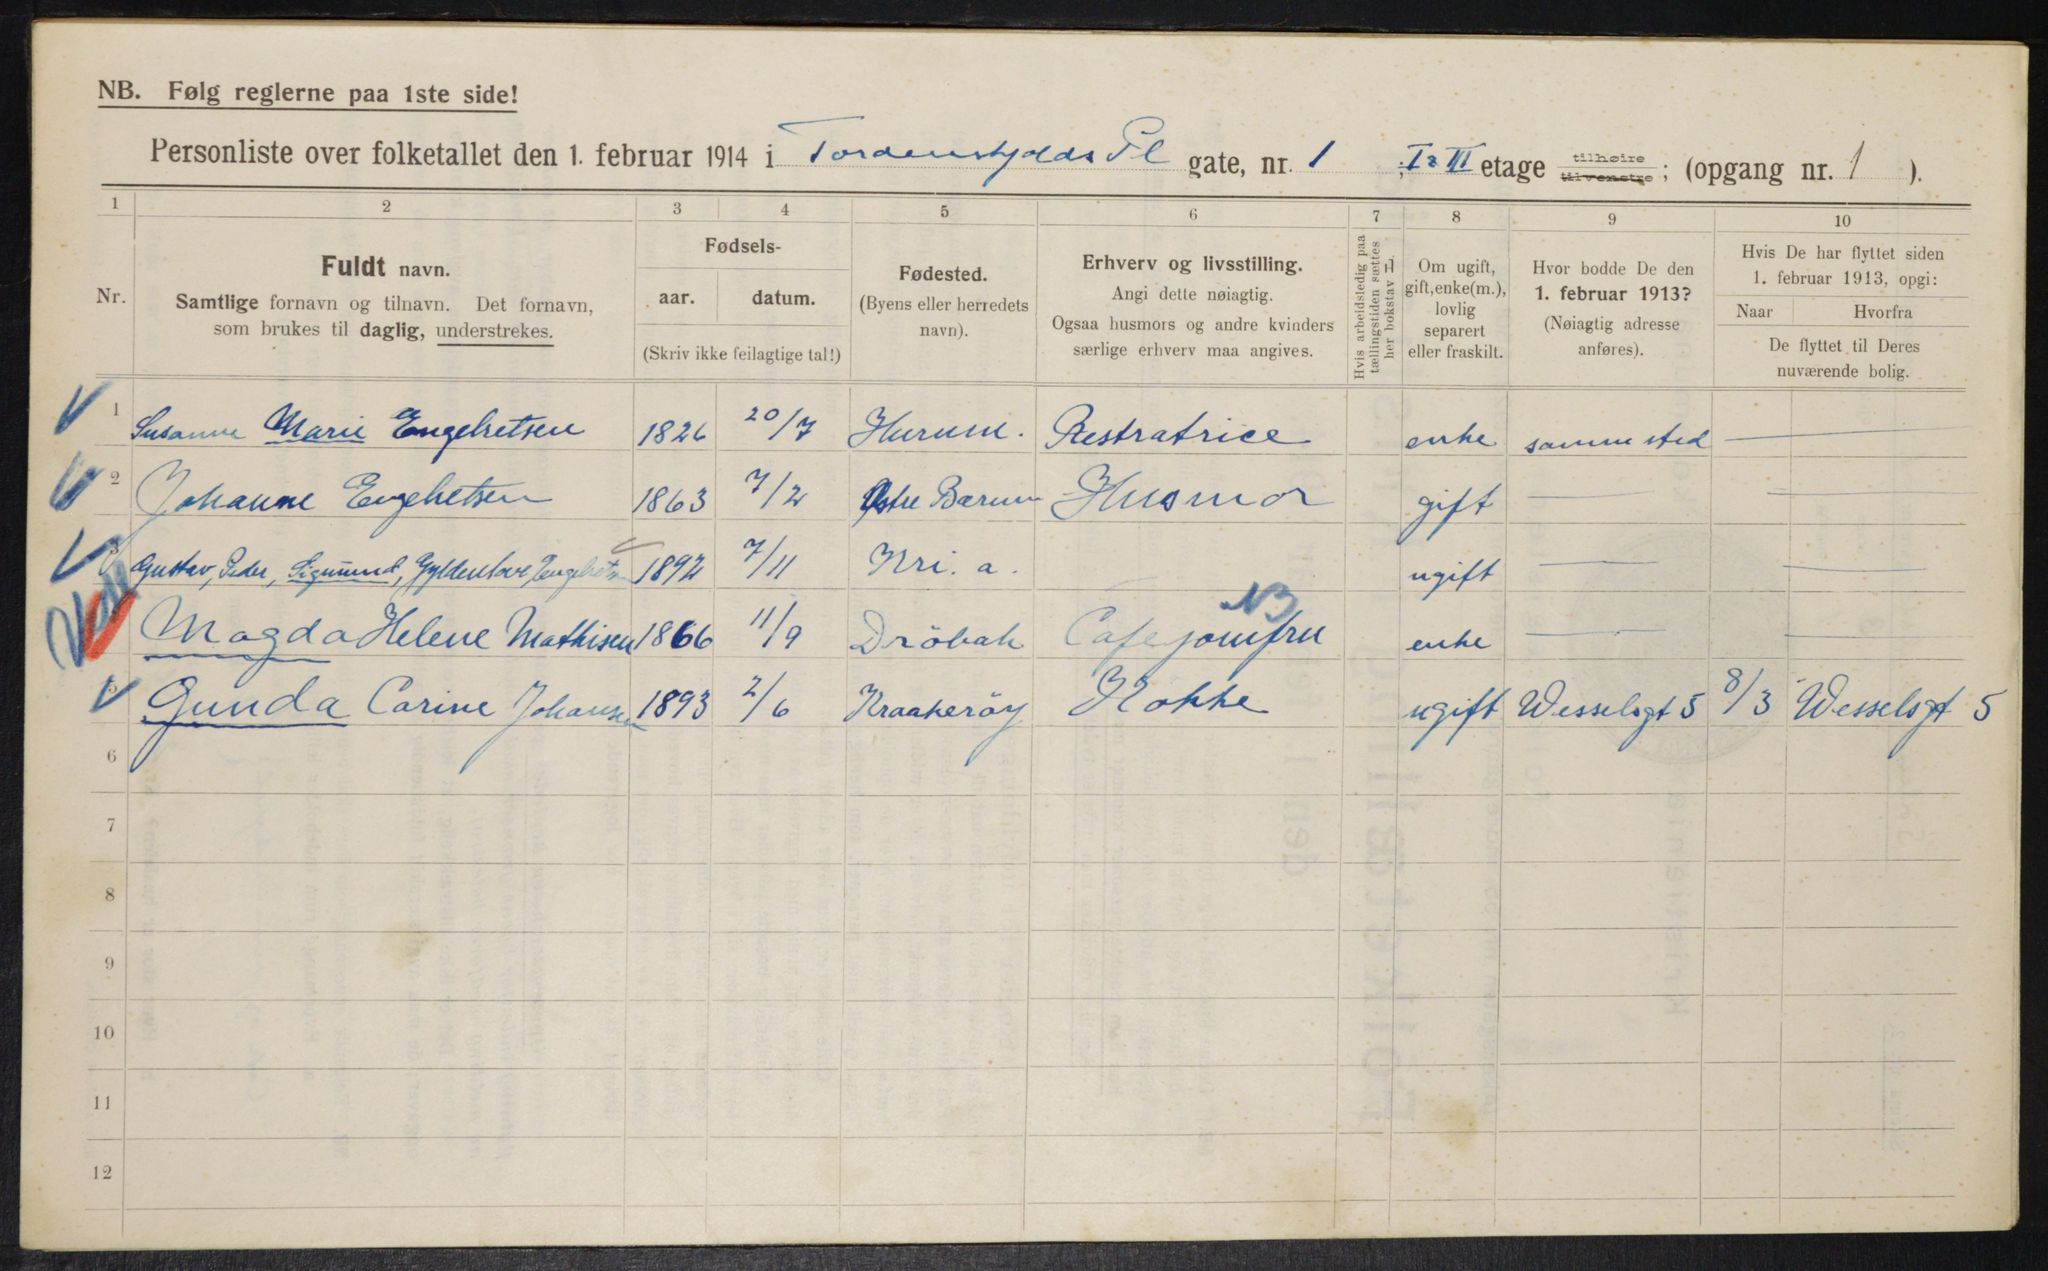 NB. Følg reglerne paa 1ste side!
Personliste over folketallet den 1. februar 1914 i Tordenskjolds Pl gate, nr. 1, I & III etage tilhøire tilvenstre; (opgang nr. 1 ).
1 2 3 4 5 6 7 8 9 10
Nr.
Fuldt navn.
Samtlige fornavn og tilnavn. Det fornavn,
som brukes til daglig, understrekes.
Fødsels-
aar. datum.
(Skriv ikke feilagtige tal!)
Fødested.
(Byens eller herredets
navn).
Erhverv og livsstilling.
Angi dette nøiagtig.
Ogsaa husmors og andre kvinders
særlige erhverv maa angives.
Hvis arbeidsledig paa
tællingstiden sættes
her bokstav L
Om ugift,
gift, enke(m.),
lovlig
separert
eller fraskilt.
Hvor bodde De den
1. februar 1913?
(Nøiagtig adresse
anføres).
Hvis De har flyttet siden
1. februar 1913, opgi:
Naar Hvorfra
De flyttet til Deres
nuværende bolig.
1 Susanne Marie Engebretsen 1826 20/7 Hurum. Restratrice enke samme sted — —
2 Johanne Engebretsen 1863 7/2 Østre Bærum Husmor gift — —
3 Gustav, Peder, Sigmund, Gyldenløve, Engebretsen 1892 7/11 Kri. a. ugift — —
NB
Magda Helene Mathisen 1866 11/9 Dröbak Cafejomfru enke — —
5 Gunda Carine Johansen 1893 2/6 Kraakeröy Kokke ugift Wesselsgt 5 8/3 Wesselsgt 5
6
7
8
9
10
11
12